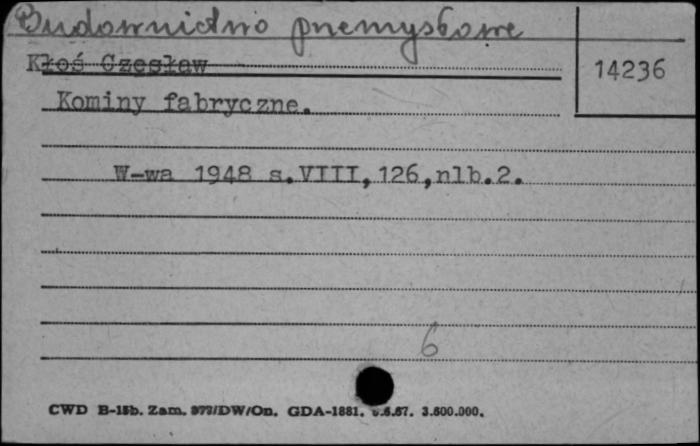 Budownictwo przemysłowe
14236
Kłoś Czesław
Kominy fabryczne.
W-wa 1948 s.VIII,126,nlb.2.
6
CWD B-15b. Zam. 373/DW/On. GDA-1881. 6.6.67. 3.600.000.